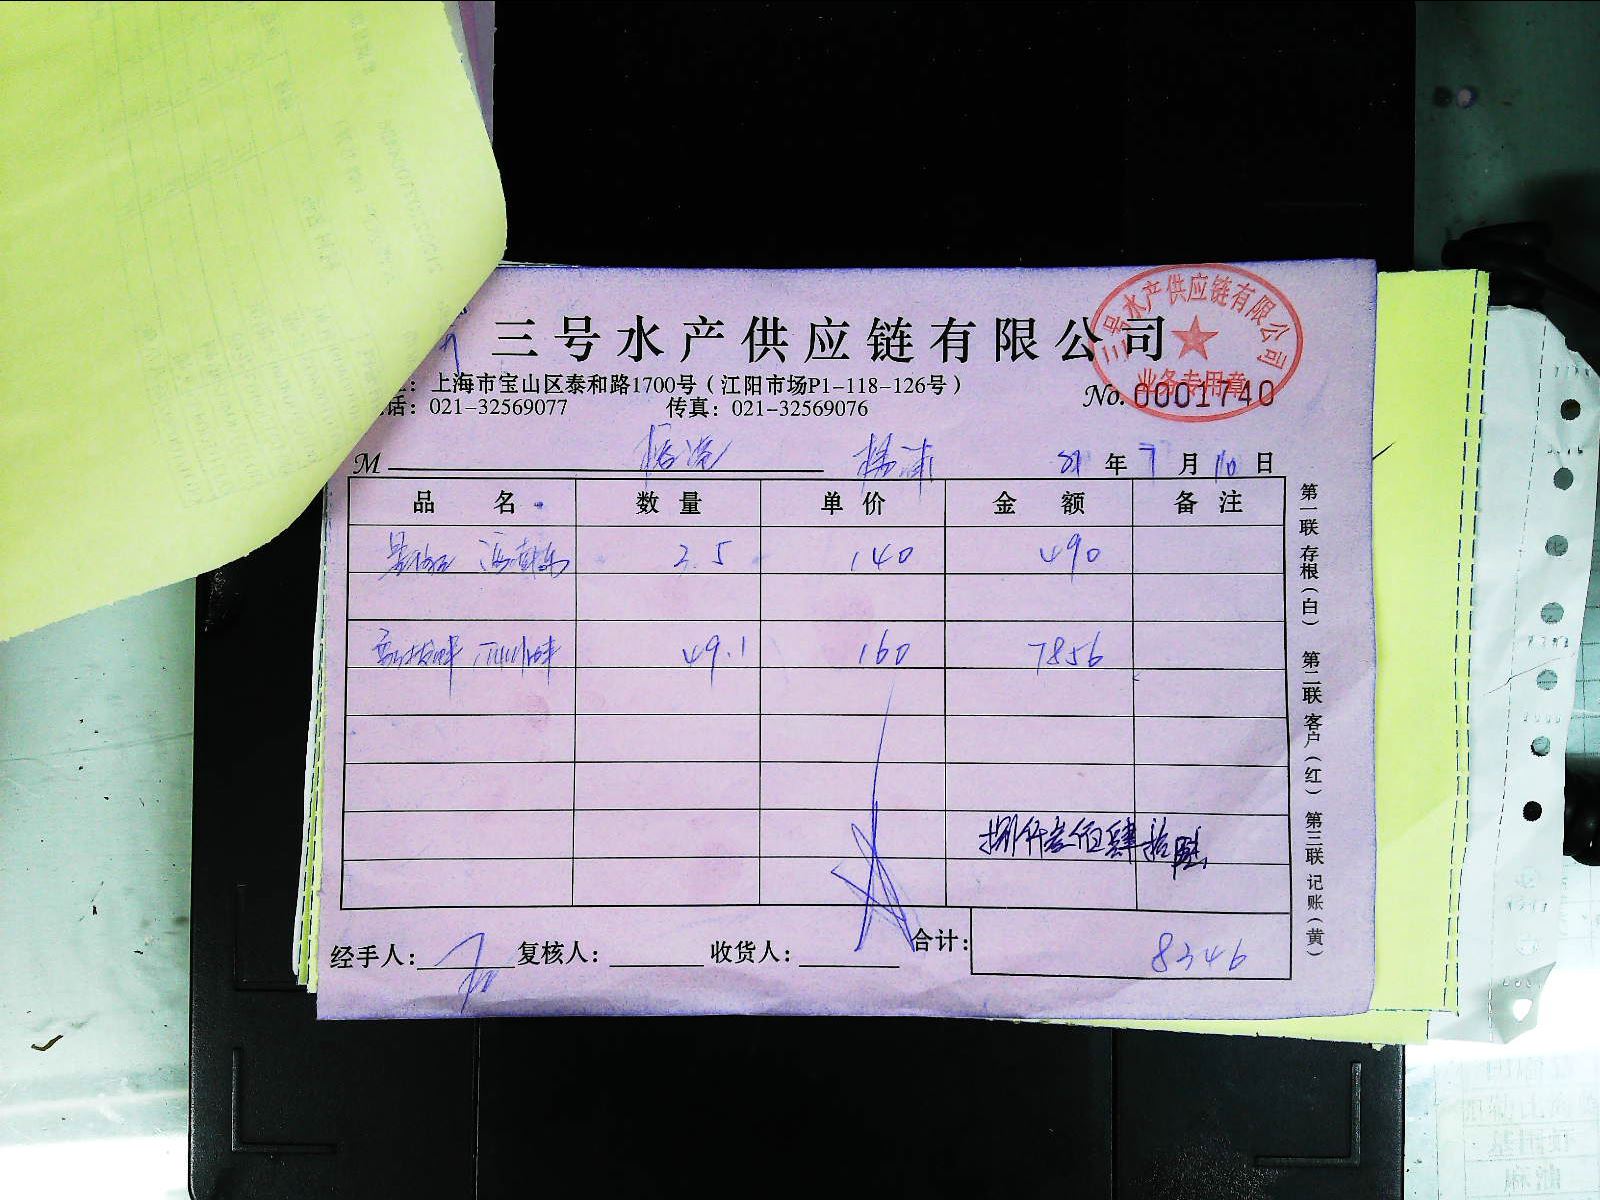 三号水产供应链有限公司
三号水产供应链有限公司
业务专用章
：上海市宝山区泰和路1700号（江阳市场P1-118-126号）
话：021-32569077 传真：021-32569076
No. 0001740
M 杨浦 年 7 月 10 日
品名 数量 单价 金额 备注
3.5 140 490
49.1 160 7856
捌仟叁佰肆拾陆
经手人： 复核人： 收货人： 合计： 8346
第一联 存根（白） 第二联 客户（红） 第三联 记账（黄）